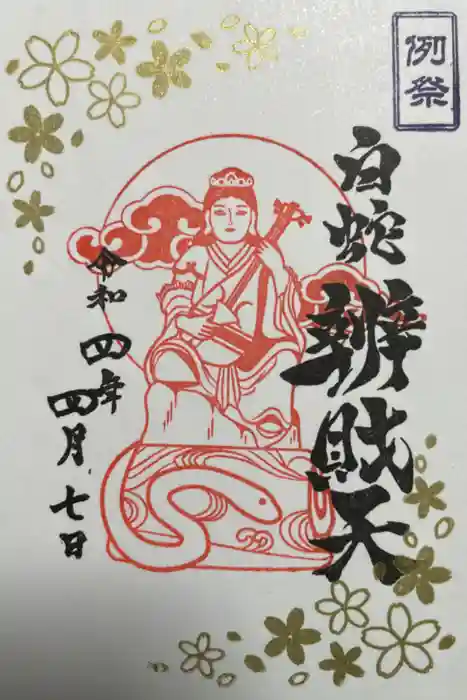 例祭
白蛇辨財天
令和四年四月七日